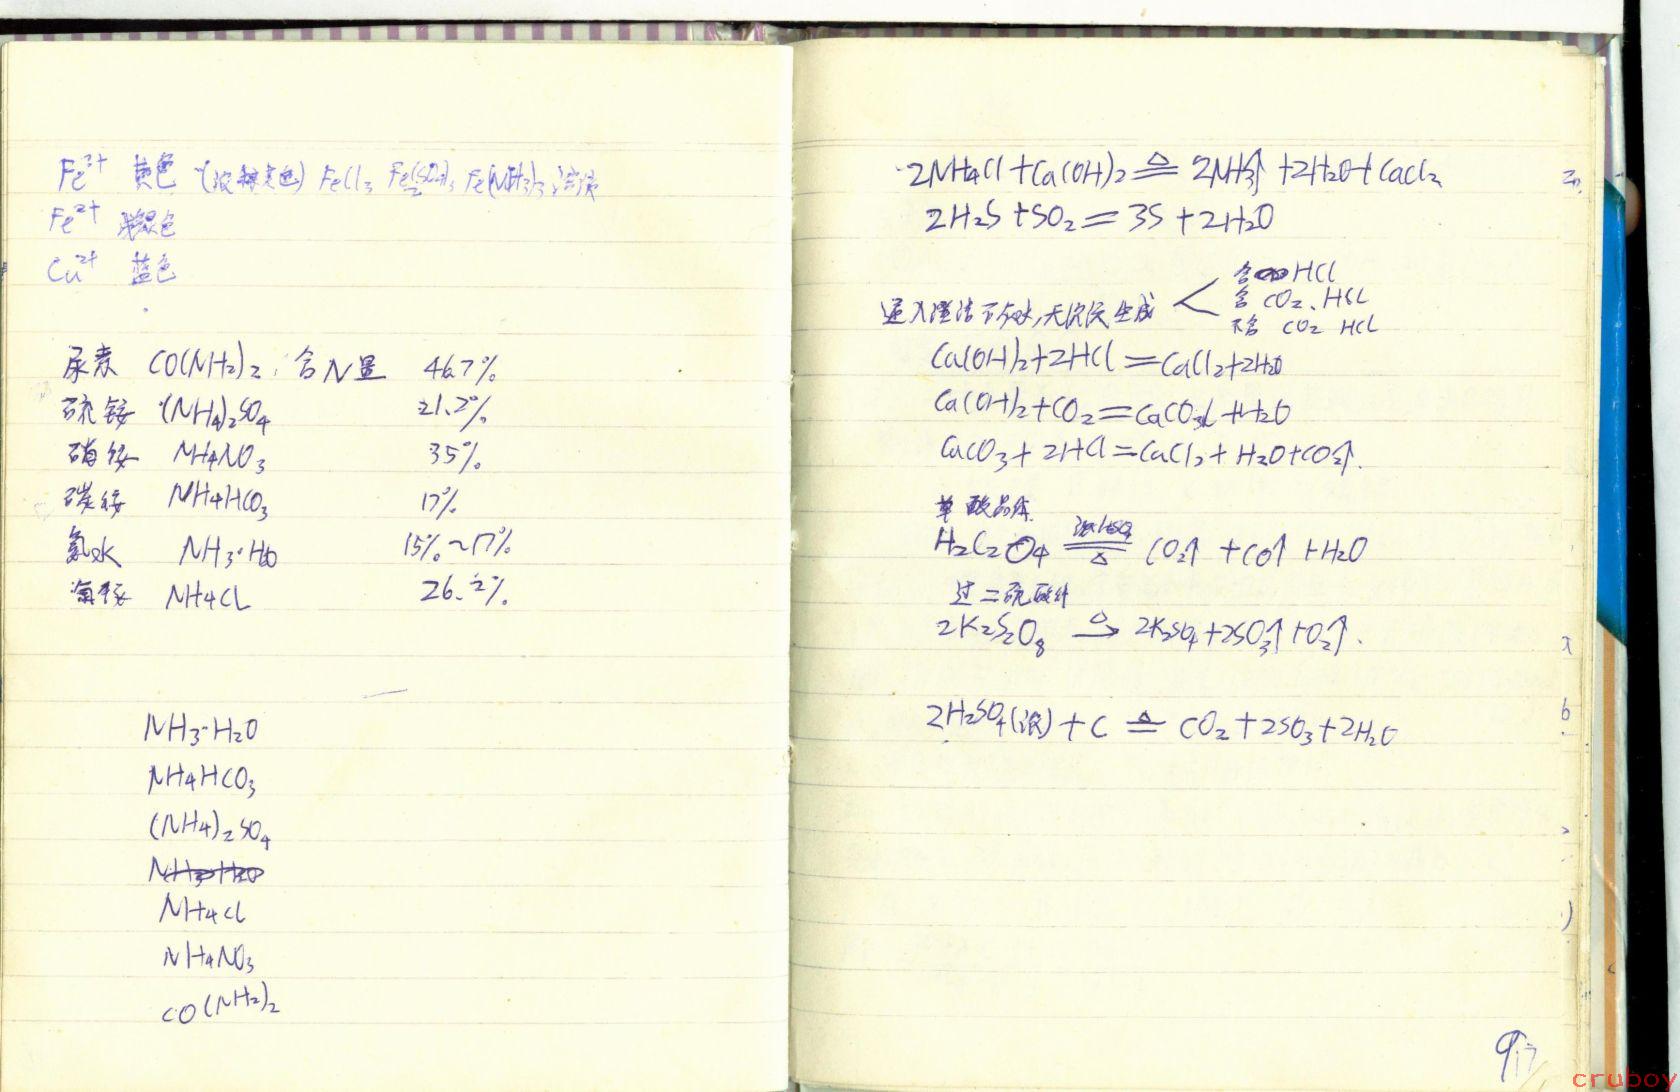 Fe³⁺ 黄色 (浓棕黄色) FeCl₃ Fe₂(SO₄)₃ Fe(NH₃)₃ 溶液
Fe²⁺ 浅绿色
Cu²⁺ 蓝色
尿素 CO(NH₂)₂ 含N量 46.7%
硫铵 (NH₄)₂SO₄ 21.2%
硝铵 NH₄NO₃ 35%
碳铵 NH₄HCO₃ 17%
氨水 NH₃·H₂O 15%~17%
氯铵 NH₄Cl 26.2%
NH₃·H₂O
NH₄HCO₃
(NH₄)₂SO₄
NH₃·H₂O
NH₄Cl
NH₄NO₃
CO(NH₂)₂
2NH₄Cl+Ca(OH)₂ ≜ 2NH₃↑+2H₂O+CaCl₂
2H₂S+SO₂=3S+2H₂O
含 HCl
通入澄清石灰水,无沉淀生成 < 含 CO₂、HCl
不含 CO₂ HCl
Ca(OH)₂+2HCl=CaCl₂+2H₂O
Ca(OH)₂+CO₂=CaCO₃↓+H₂O
CaCO₃+2HCl=CaCl₂+H₂O+CO₂↑.
草酸晶体
H₂C₂O₄ 浓H₂SO₄ ══ △ CO₂↑+CO↑+H₂O
过二硫酸钾
2K₂S₂O₈ △→ 2K₂SO₄+2SO₃↑+O₂↑.
2H₂SO₄(浓)+C ≜ CO₂+2SO₃+2H₂O
cruboy